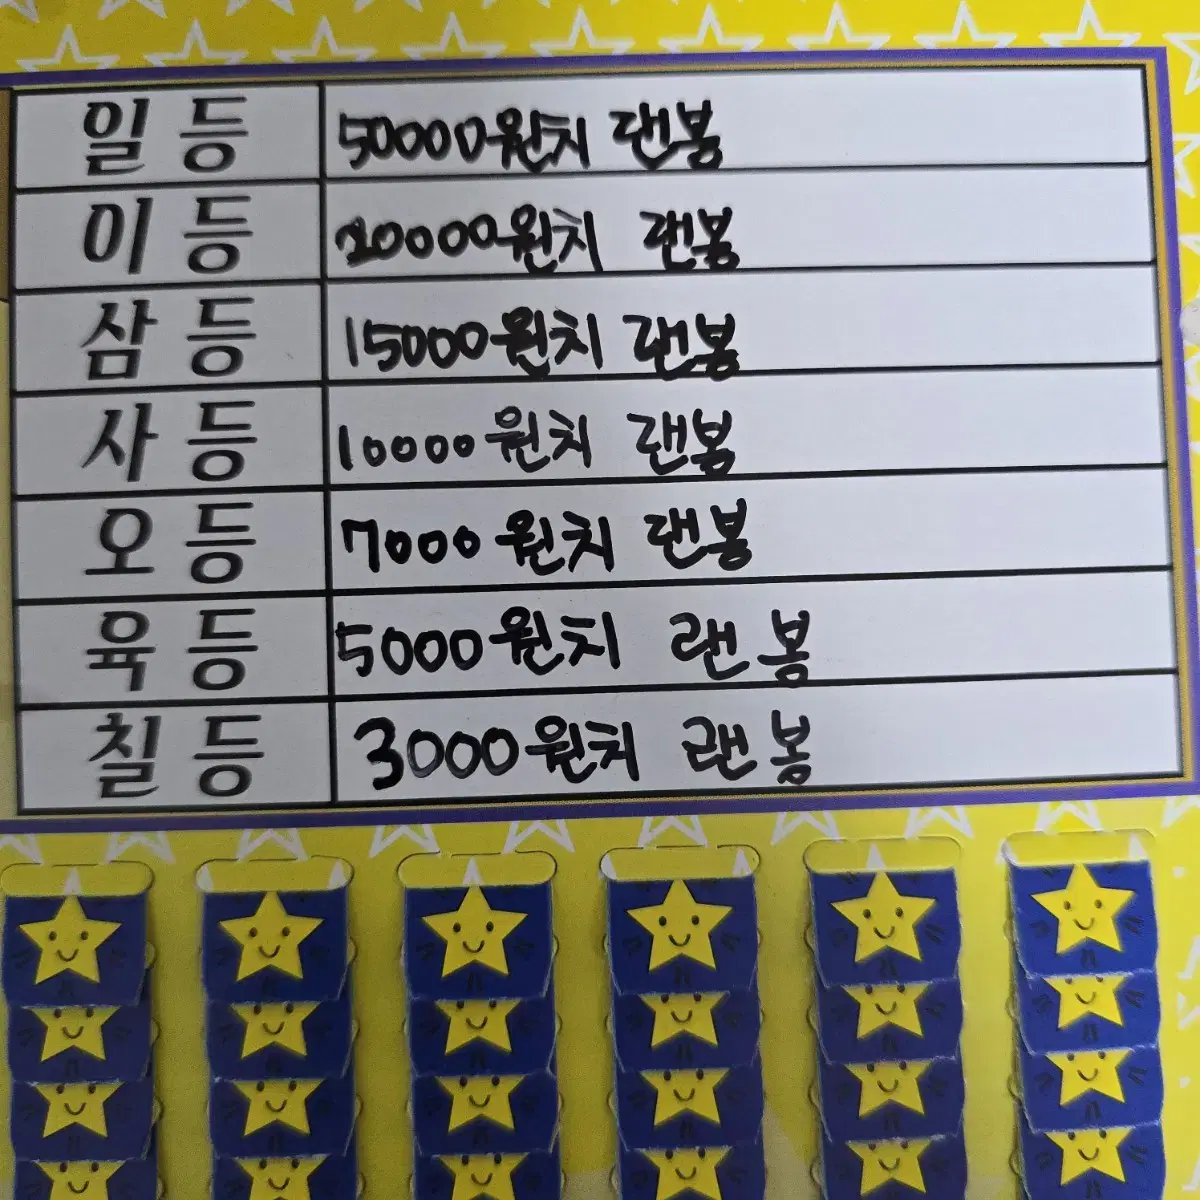 일등 50000원치 랜봉
이등 20000원치 랜봄
삼등 15000원치 랜봄
사등 10000원치 랜봄
오등 7000원치 랜봉
육등 5000원치 랜봄
칠등 3000원치 랜봉